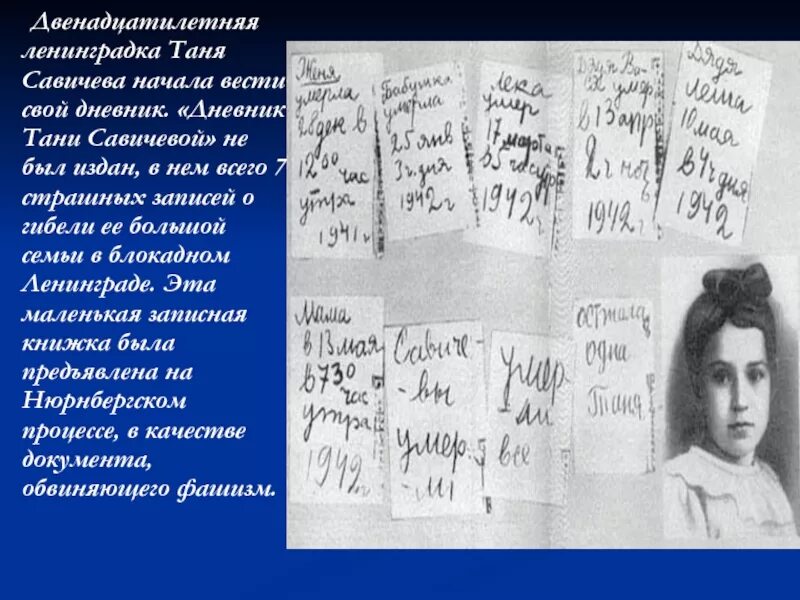 Двенадцатилетняя
ленинградка Таня
Савичева начала вести
свой дневник. «Дневник
Тани Савичевой» не
был издан, в нем всего 7
страшных записей о
гибели ее большой
семьи в блокадном
Ленинграде. Эта
маленькая записная
книжка была
предъявлена на
Нюрнбергском
процессе, в качестве
документа,
обвиняющего фашизм.
Женя
умерла
28 ден в
12 00 час
утра
1941 г
Бабушка
умерла
25 янв
3 ч. дня
1942 г
Лека
умер
17 марта
в 5 час утр
1942 г
Дядя Ва-
ся умер
в 13 апр
2 ч ноч
1942 г
Дядя
Леша
10 мая
в 4 ч дня
1942
Мама
в 13 мая
в 7 30
час
утра
1942 г
Савиче-
-вы
умер-
-ли
умер-
-ли
все
осталась
одна
Таня